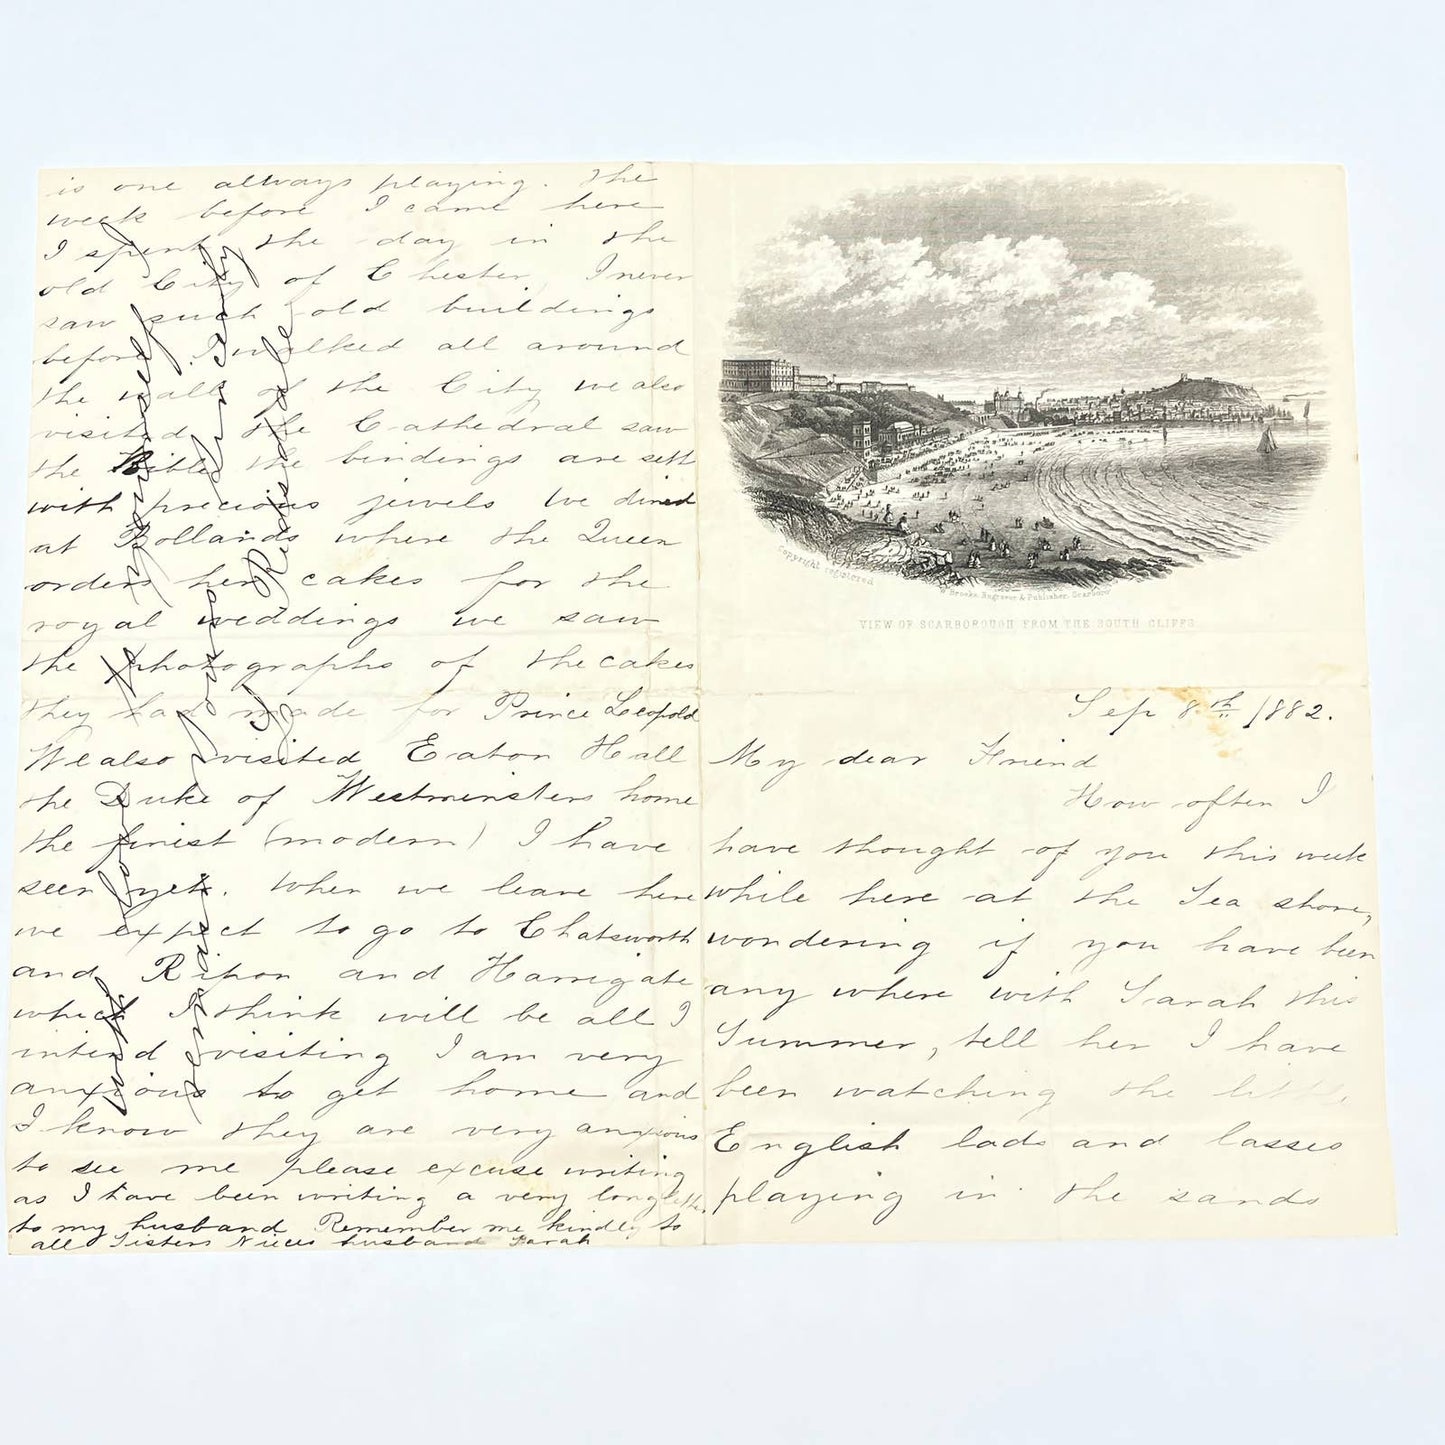 Copyright registered
Brooke, Engraver & Publisher, Scarboro'
VIEW OF SCARBOROUGH FROM THE SOUTH CLIFFS
Sep 8th 1882.
My dear Friend
How often I
have thought of you this week
while here at the Sea shore,
wondering if you have been
any where with Sarah this
Summer, tell her I have
been watching the little
English lads and lasses
playing in the sands
is one always playing. The
week before I came here
I spent the day in the
old City of Chester, I never
saw such old buildings
before I walked all around
the walls of the City we also
visited the Cathedral saw
the Bible the bindings are sett
with precious jewels We dined
at Bollands where the Queen
orders her cakes for the
royal weddings we saw
the photographs of the cakes
they had made for Prince Leopold
We also visited Eaton Hall
the Duke of Westminsters home
the finest (modern) I have
seen yet. When we leave here
we expect to go to Chatsworth
and Ripon and Harrigate
which I think will be all I
intend visiting I am very
anxious to get home and
I know they are very anxious
to see me please excuse writing
as I have been writing a very long letter
to my husband Remember me kindly to
all Sisters Nieces husband Sarah
yourself